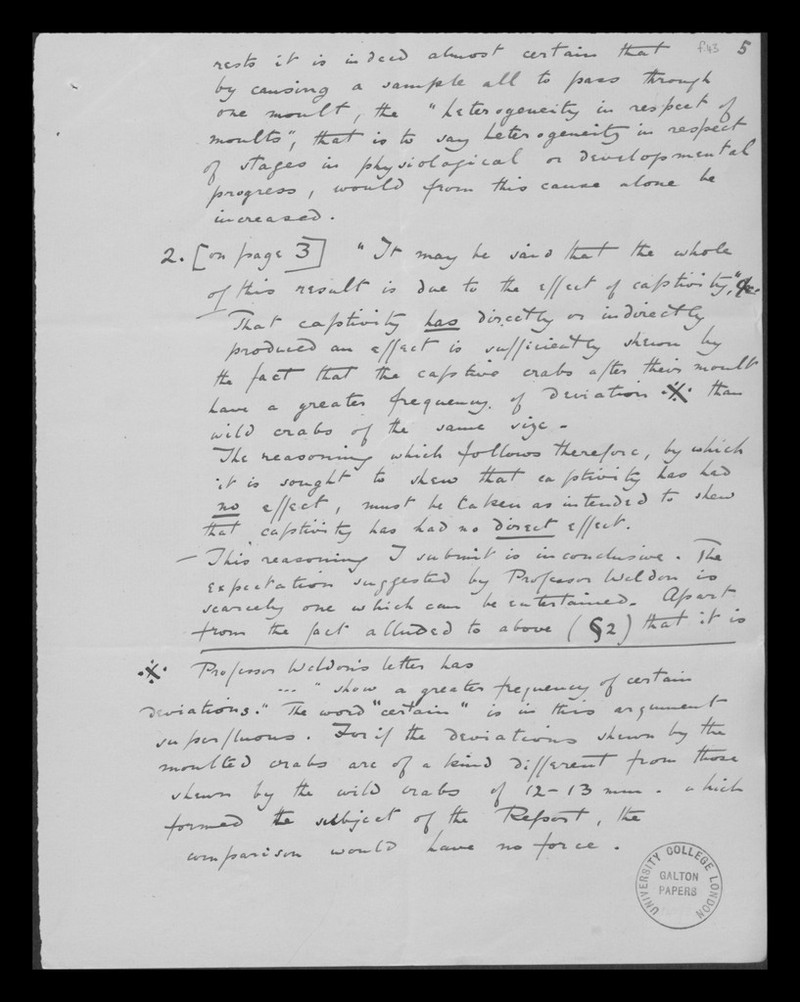 f.43 5
rests it is indeed almost certain that
by causing a sample all to pass through
one moult, the "heterogeneity in respect of
moults", that is to say heterogeneity in respect
of stages in physiological or developmental
progress, would from this cause alone be
increased.
2. [on page 3] "It may be said that the whole
of this result is due to the effect of captivity," &c.
That captivity has directly or indirectly
produced an effect is sufficiently shewn by
the fact that the captive crabs after their moult
have a greater frequency of deviation ※ than
wild crabs of the same size.
The reasoning which follows therefore, by which
it is sought to shew that captivity has had
no effect, must be taken as intended to shew
that captivity has had no direct effect.
— This reasoning I submit is inconclusive. The
expectation suggested by Professor Weldon is
scarcely one which can be entertained. Apart
from the fact alluded to above (§2) that it is
※ Professor Weldon's letter has
... "show a greater frequency of certain
deviations." The word "certain" is in this argument
superfluous. For if the deviations shewn by the
moulted crabs are of a kind different from those
shewn by the wild crabs of 12-13 mm. which
formed the subject of the Report, the
comparison would have no force.
UNIVERSITY COLLEGE LONDON
GALTON
PAPERS